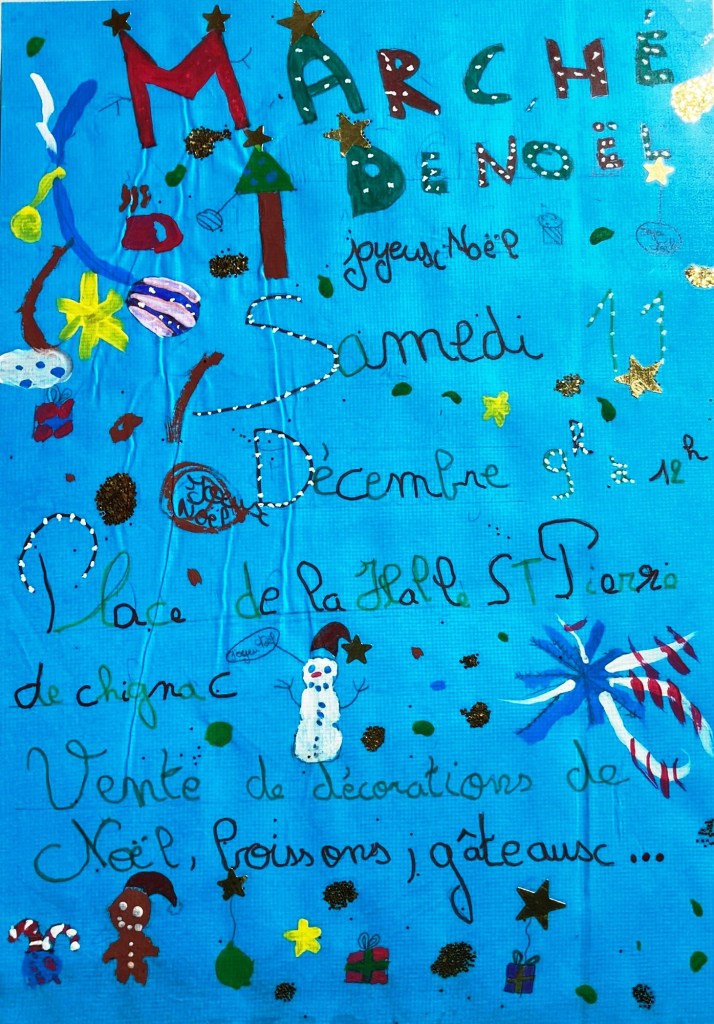 MARCHÉ
DE NOËL
joyeux Noël
Samedi 11
Décembre 9h à 12h
Joyeux
Noël
Place de la Halle ST Pierre
de chignac
Vente de décorations de
Noël, boissons, gâteaux ...